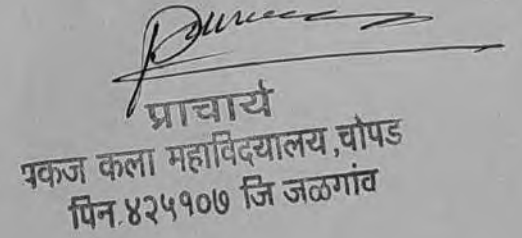 प्राचार्य
पकज कला महाविदयालय,चोपड
पिन.४२५१०७ जि जळगांव